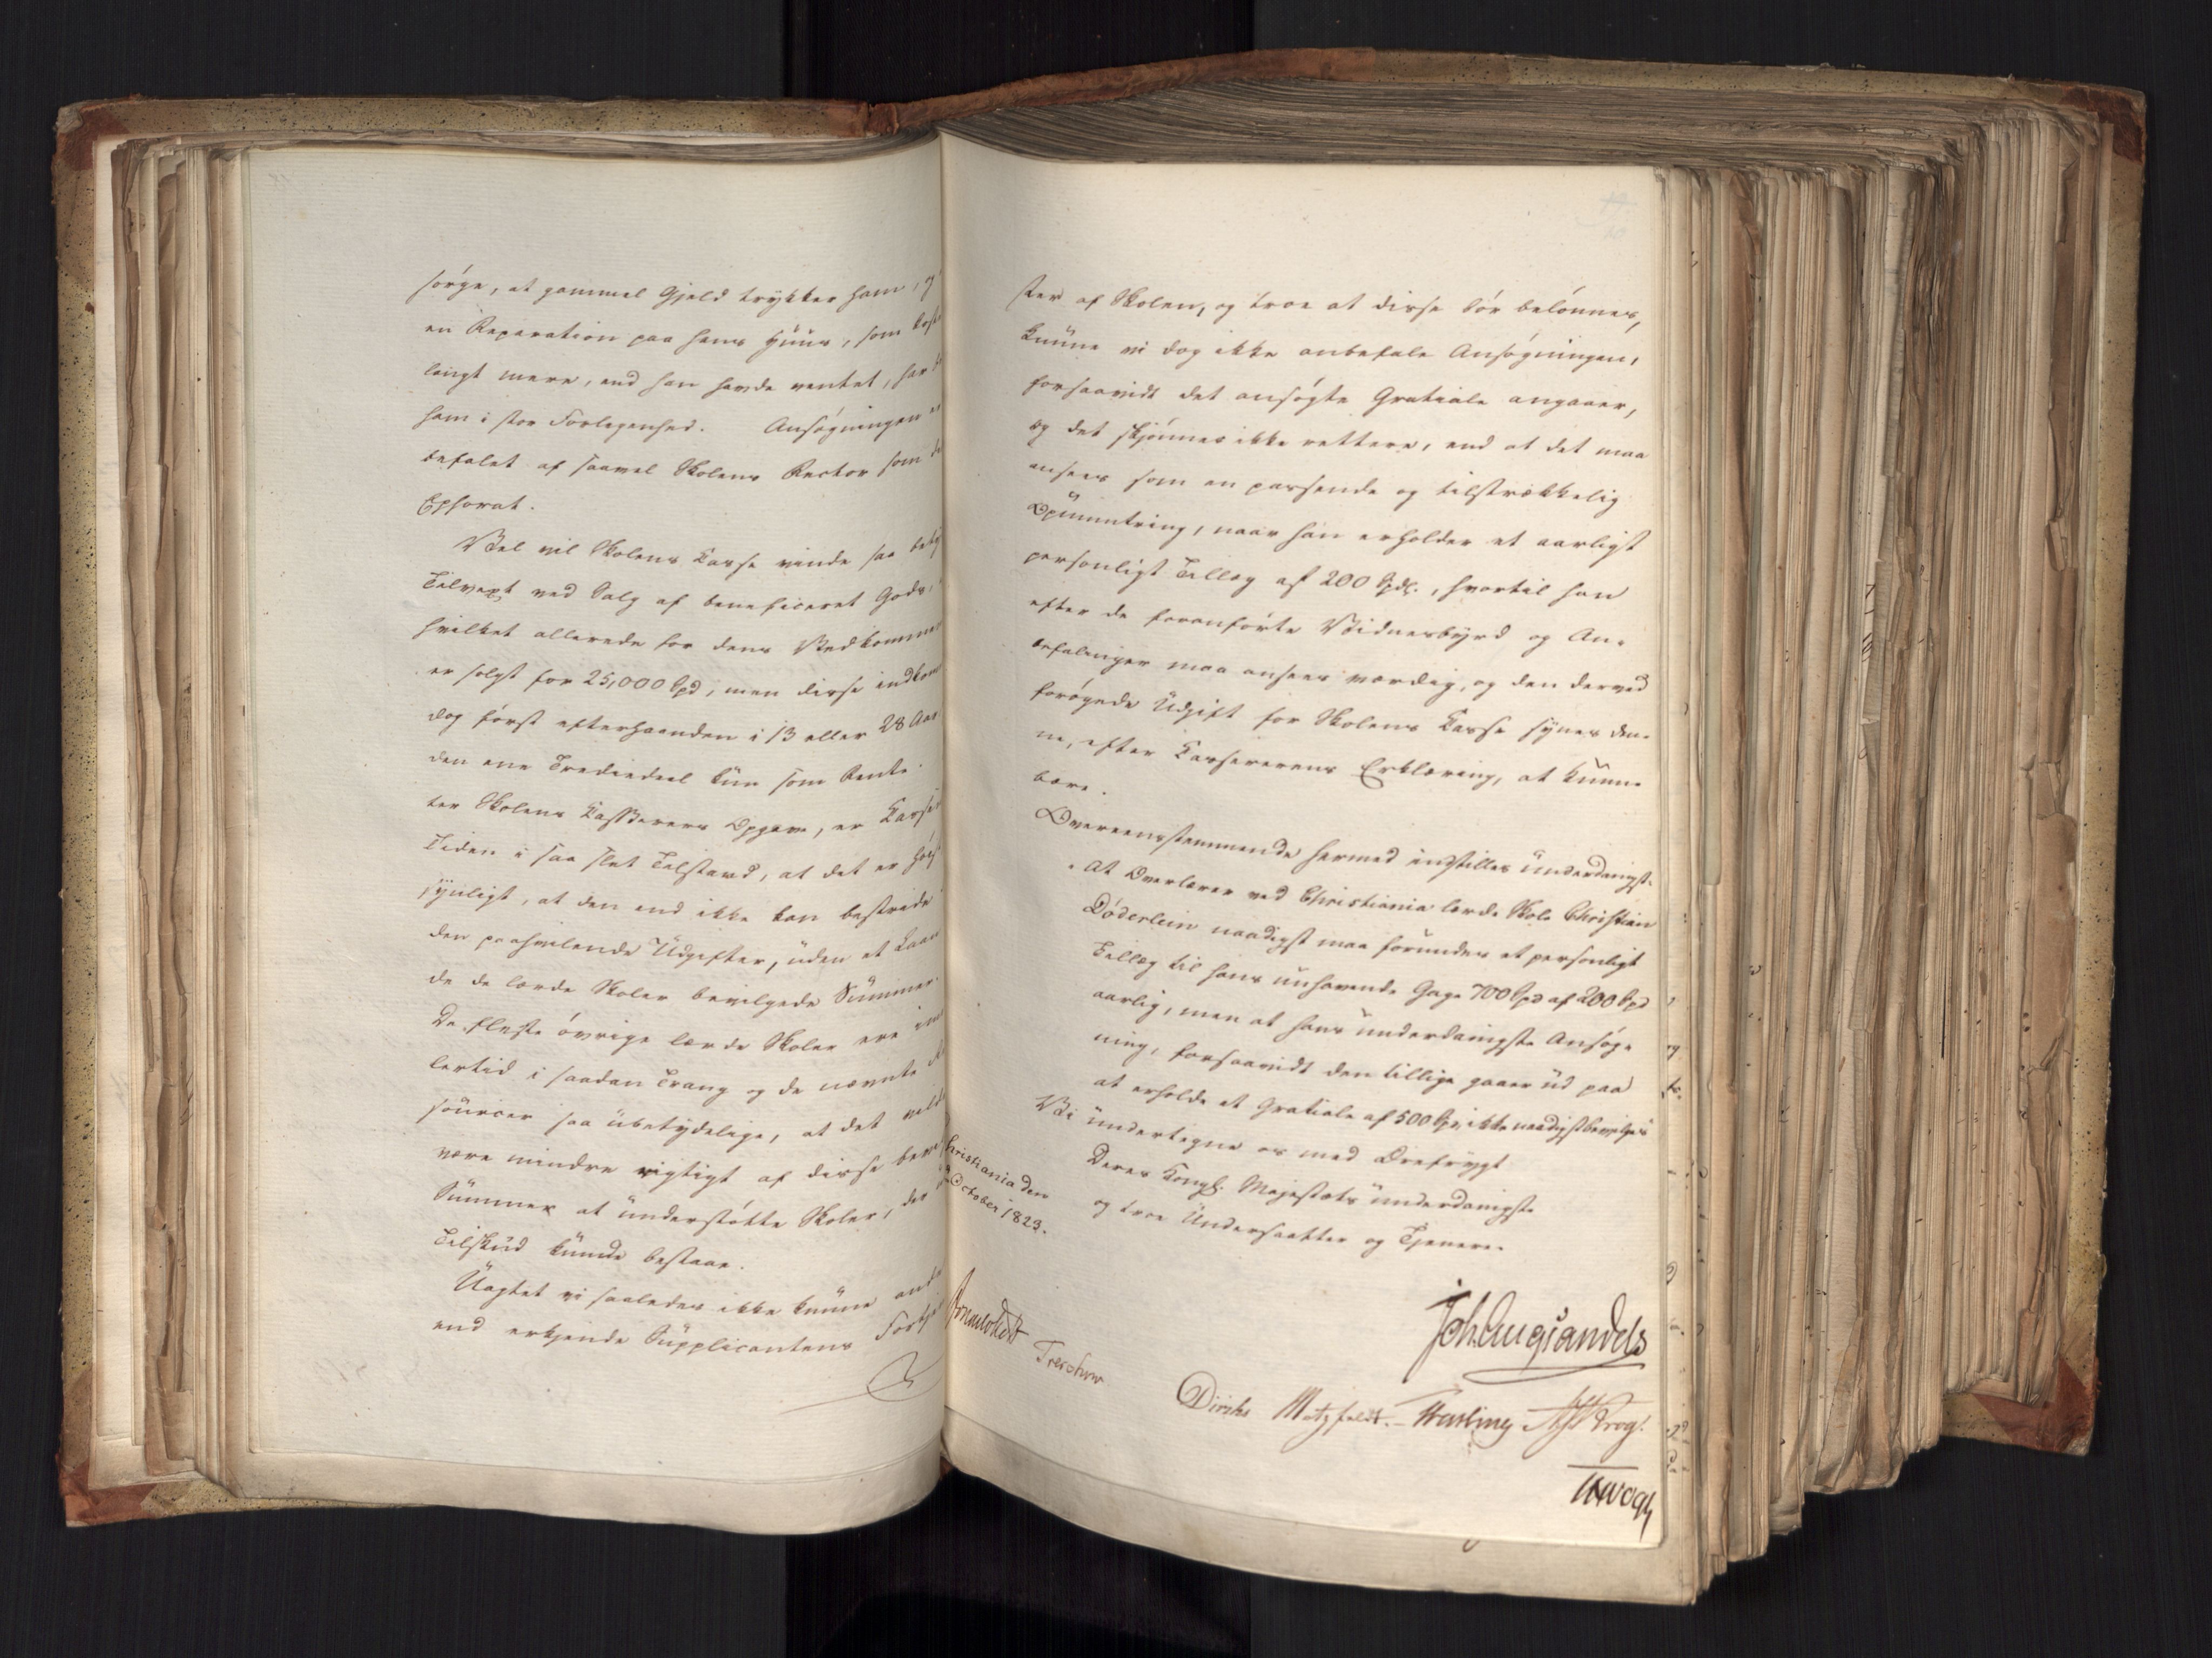 sørge, at gammel Gjeld trykker ham, og
en Reparation paa hans Huus, som kost
langt mere, end han havde ventet, har
ham i stor Forlegenhed. Ansøgningen er
befalet af saavel Skolens Rector som de
Ephorat.
Vel vil Skolens Casse vinde saa bety
Tilvext ved Salg af beneficeret Gods,
hvilket allerede for dens Vedkommen
er solgt for 25,000 Spd, men disse indkom
dog først efterhaanden i 13 eller 28 Aar
den ene Trediedeel kun som Rente.
ter Skolens Kasserers Opgave, er Casse
Tiden i saa slet Tilstand, at det er høis
synligt, at den end ikke kan bestride
den paahvilende Udgifter, uden et Laan
de de lærde Skoler bevilgede Summer.
De fleste øvrige lærde Skoler ere im
lertid i saadan Trang og de nævnte Re
sourcer saa ubetydelige, at det vilde
være mindre rigtigt af disse bev
Summer at understøtte Skoler, der
Tilskud kunde bestaae.
Uagtet vi saaledes ikke kunne and
end erkjende Supplicantens Fortje
ster af Skolen, og troe at disse bør belønnes,
kunne vi dog ikke anbefale Ansøgningen,
forsaavidt det ansøgte Gratiale angaaer,
og det skjønnes ikke rettere, end at det maa
ansees som en passende og tilstrækkelig
Opmuntring, naar han erholder et aarligt
personligt Tillæg af 200 Spdl., hvortil han
efter de foranførte Vidnesbyrd og An-
befalinger maa ansees værdig, og den derved
forøgede Udgift for Skolens Casse synes den-
ne, efter Cassererens Erklæring, at kunne
bære.
Overeensstemmende hermed indstilles underdanigst:
at Overlærer ved Christiania lærde Skole Christian
Döderlein naadigst maa forundes et personligt
Tillæg til hans nuhavende Gage 700 Spd af 200 Spd
aarlig, men at hans underdanigste Ansøg-
ning, forsaavidt den tillige gaaer ud paa
at erholde et Gratiale af 500 Spd, ikke naadigst bevilges
Vi undertegne os med Ærefrygt
Deres Kongl. Majestæts underdanigste
og troe Undersaatter og Tjenere.
Christiania den
October 1823.
Joh. Aug Sandels
Treschow
Diriks Motzfeldt. Fasting Krog.
Vogt